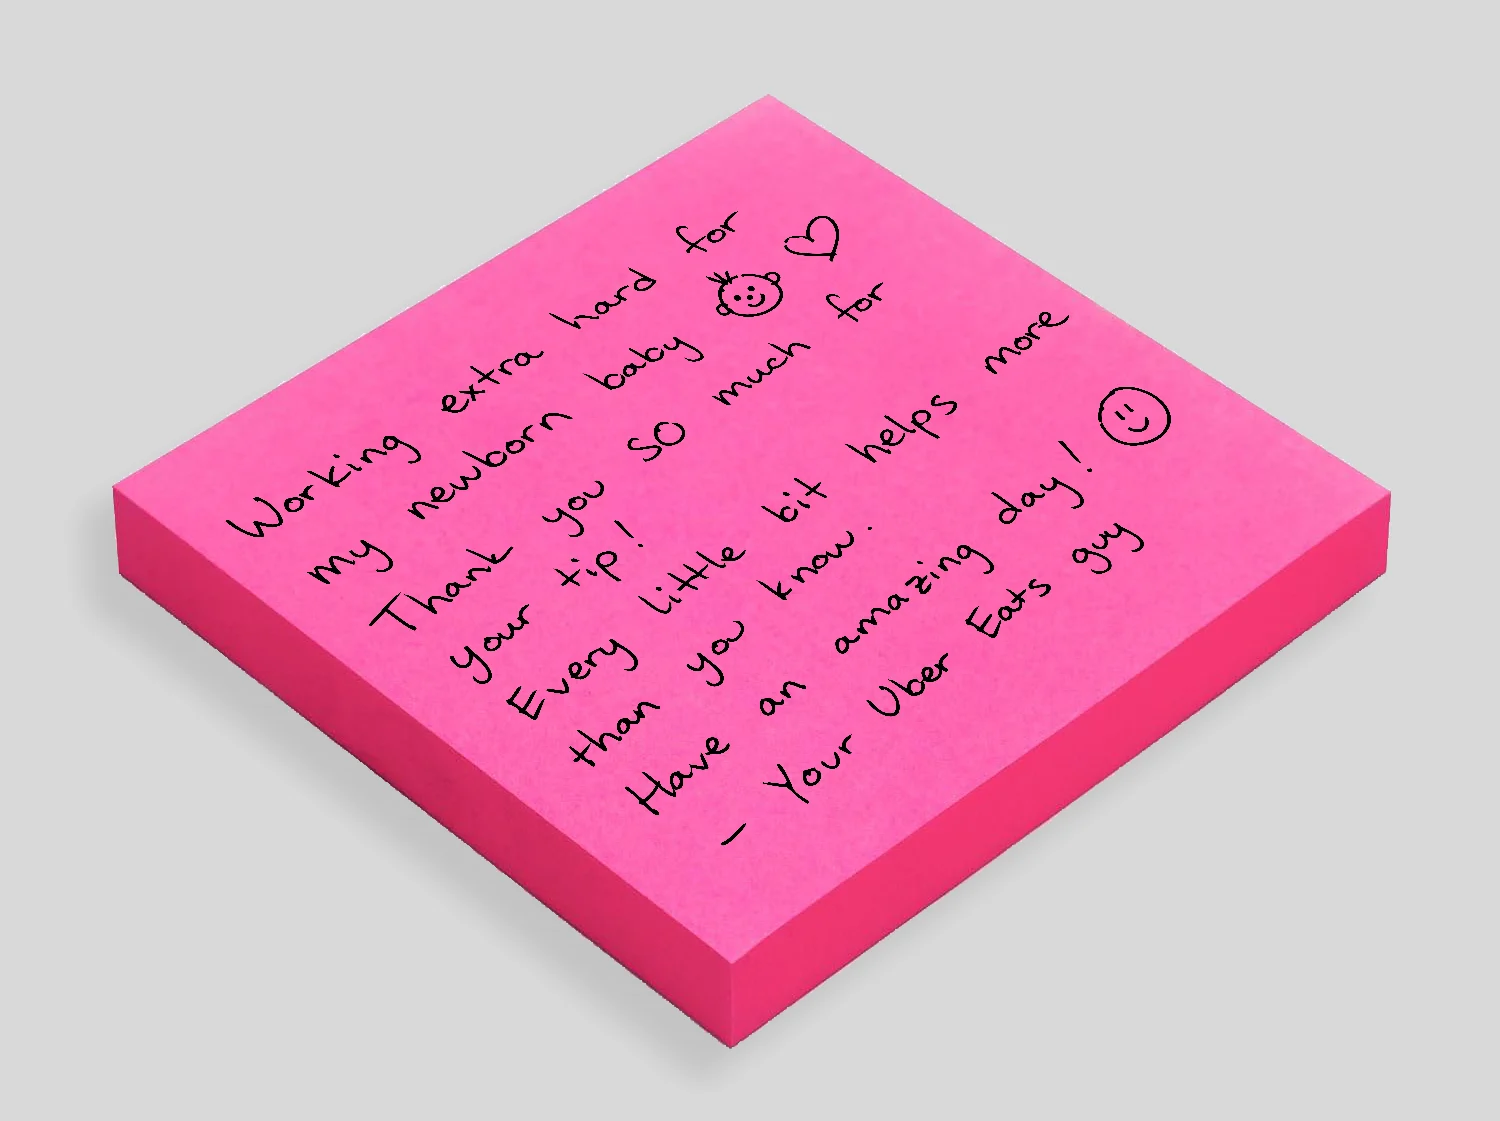 Working extra hard for
my newborn baby
Thank you so much for
your tip!
Every little bit helps more
than you know.
Have an amazing day!
- Your Uber Eats guy